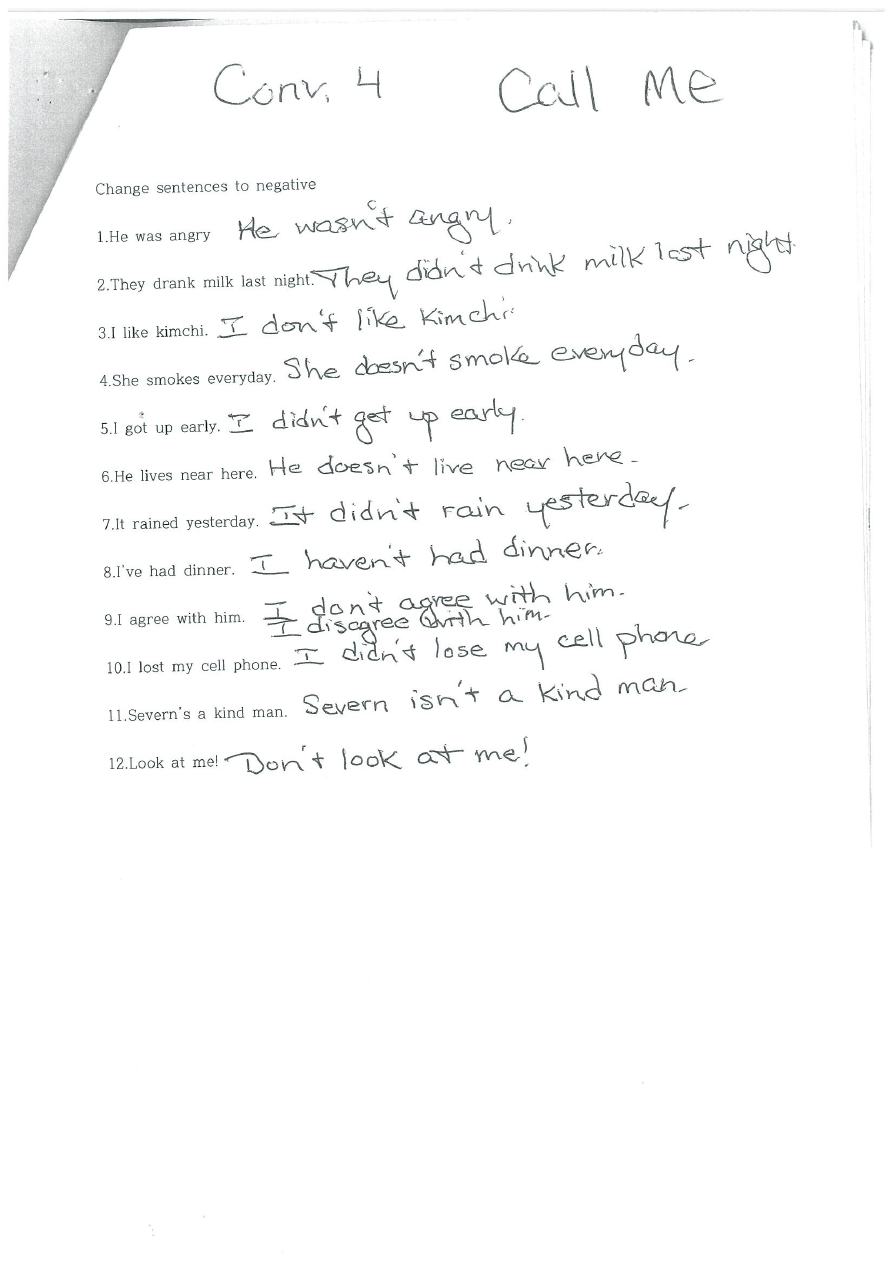 Conv. 4 Call Me
Change sentences to negative
1.He was angry He wasn't angry.
2.They drank milk last night. They didn't drink milk last night.
3.I like kimchi. I don't like Kimchi.
4.She smokes everyday. She doesn't smoke everyday.
5.I got up early. I didn't get up early.
6.He lives near here. He doesn't live near here.
7.It rained yesterday. It didn't rain yesterday.
8.I've had dinner. I haven't had dinner.
9.I agree with him. I don't agree with him.
I disagree with him.
10.I lost my cell phone. I didn't lose my cell phone
11.Severn's a kind man. Severn isn't a kind man.
12.Look at me! Don't look at me!